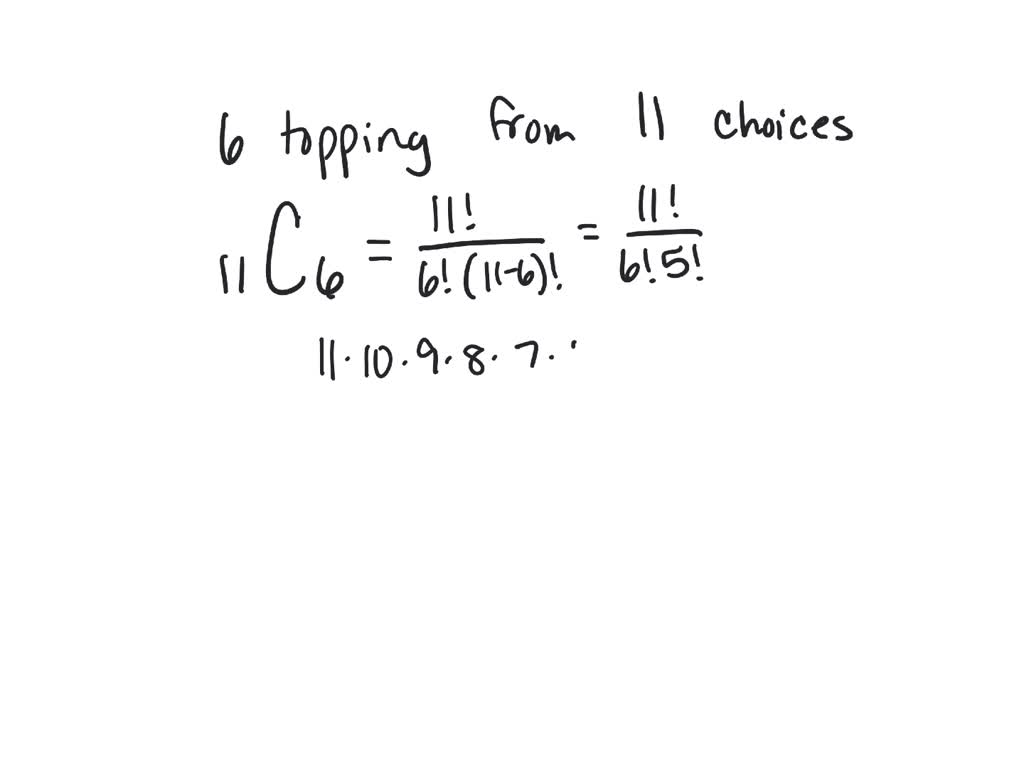 6 topping from 11 choices
11C6 = 11!/6!(11-6)! = 11!/6!5!
11·10·9·8·7·